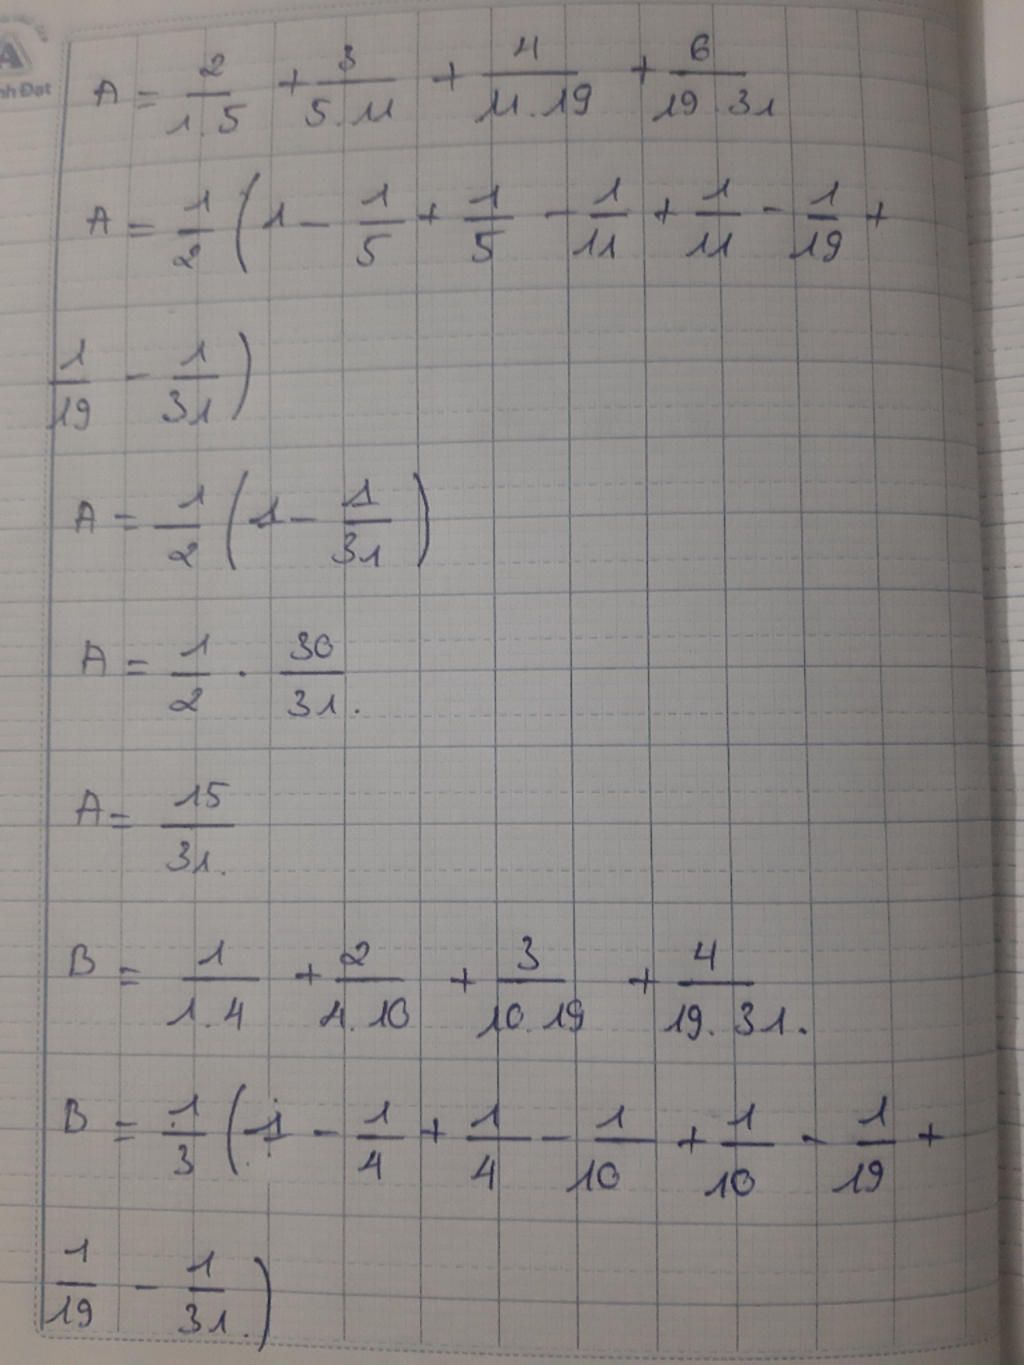 A
nh Đạt
A = 2/1.5 + 3/5.11 + 4/11.19 + 6/19.31
A = 1/2 (1 - 1/5 + 1/5 - 1/11 + 1/11 - 1/19 +
1/19 - 1/31)
A = 1/2 (1 - 1/31)
A = 1/2 . 30/31.
A = 15/31.
B = 1/1.4 + 2/4.10 + 3/10.19 + 4/19.31.
B = 1/3 (1 - 1/4 + 1/4 - 1/10 + 1/10 - 1/19 +
1/19 - 1/31.)